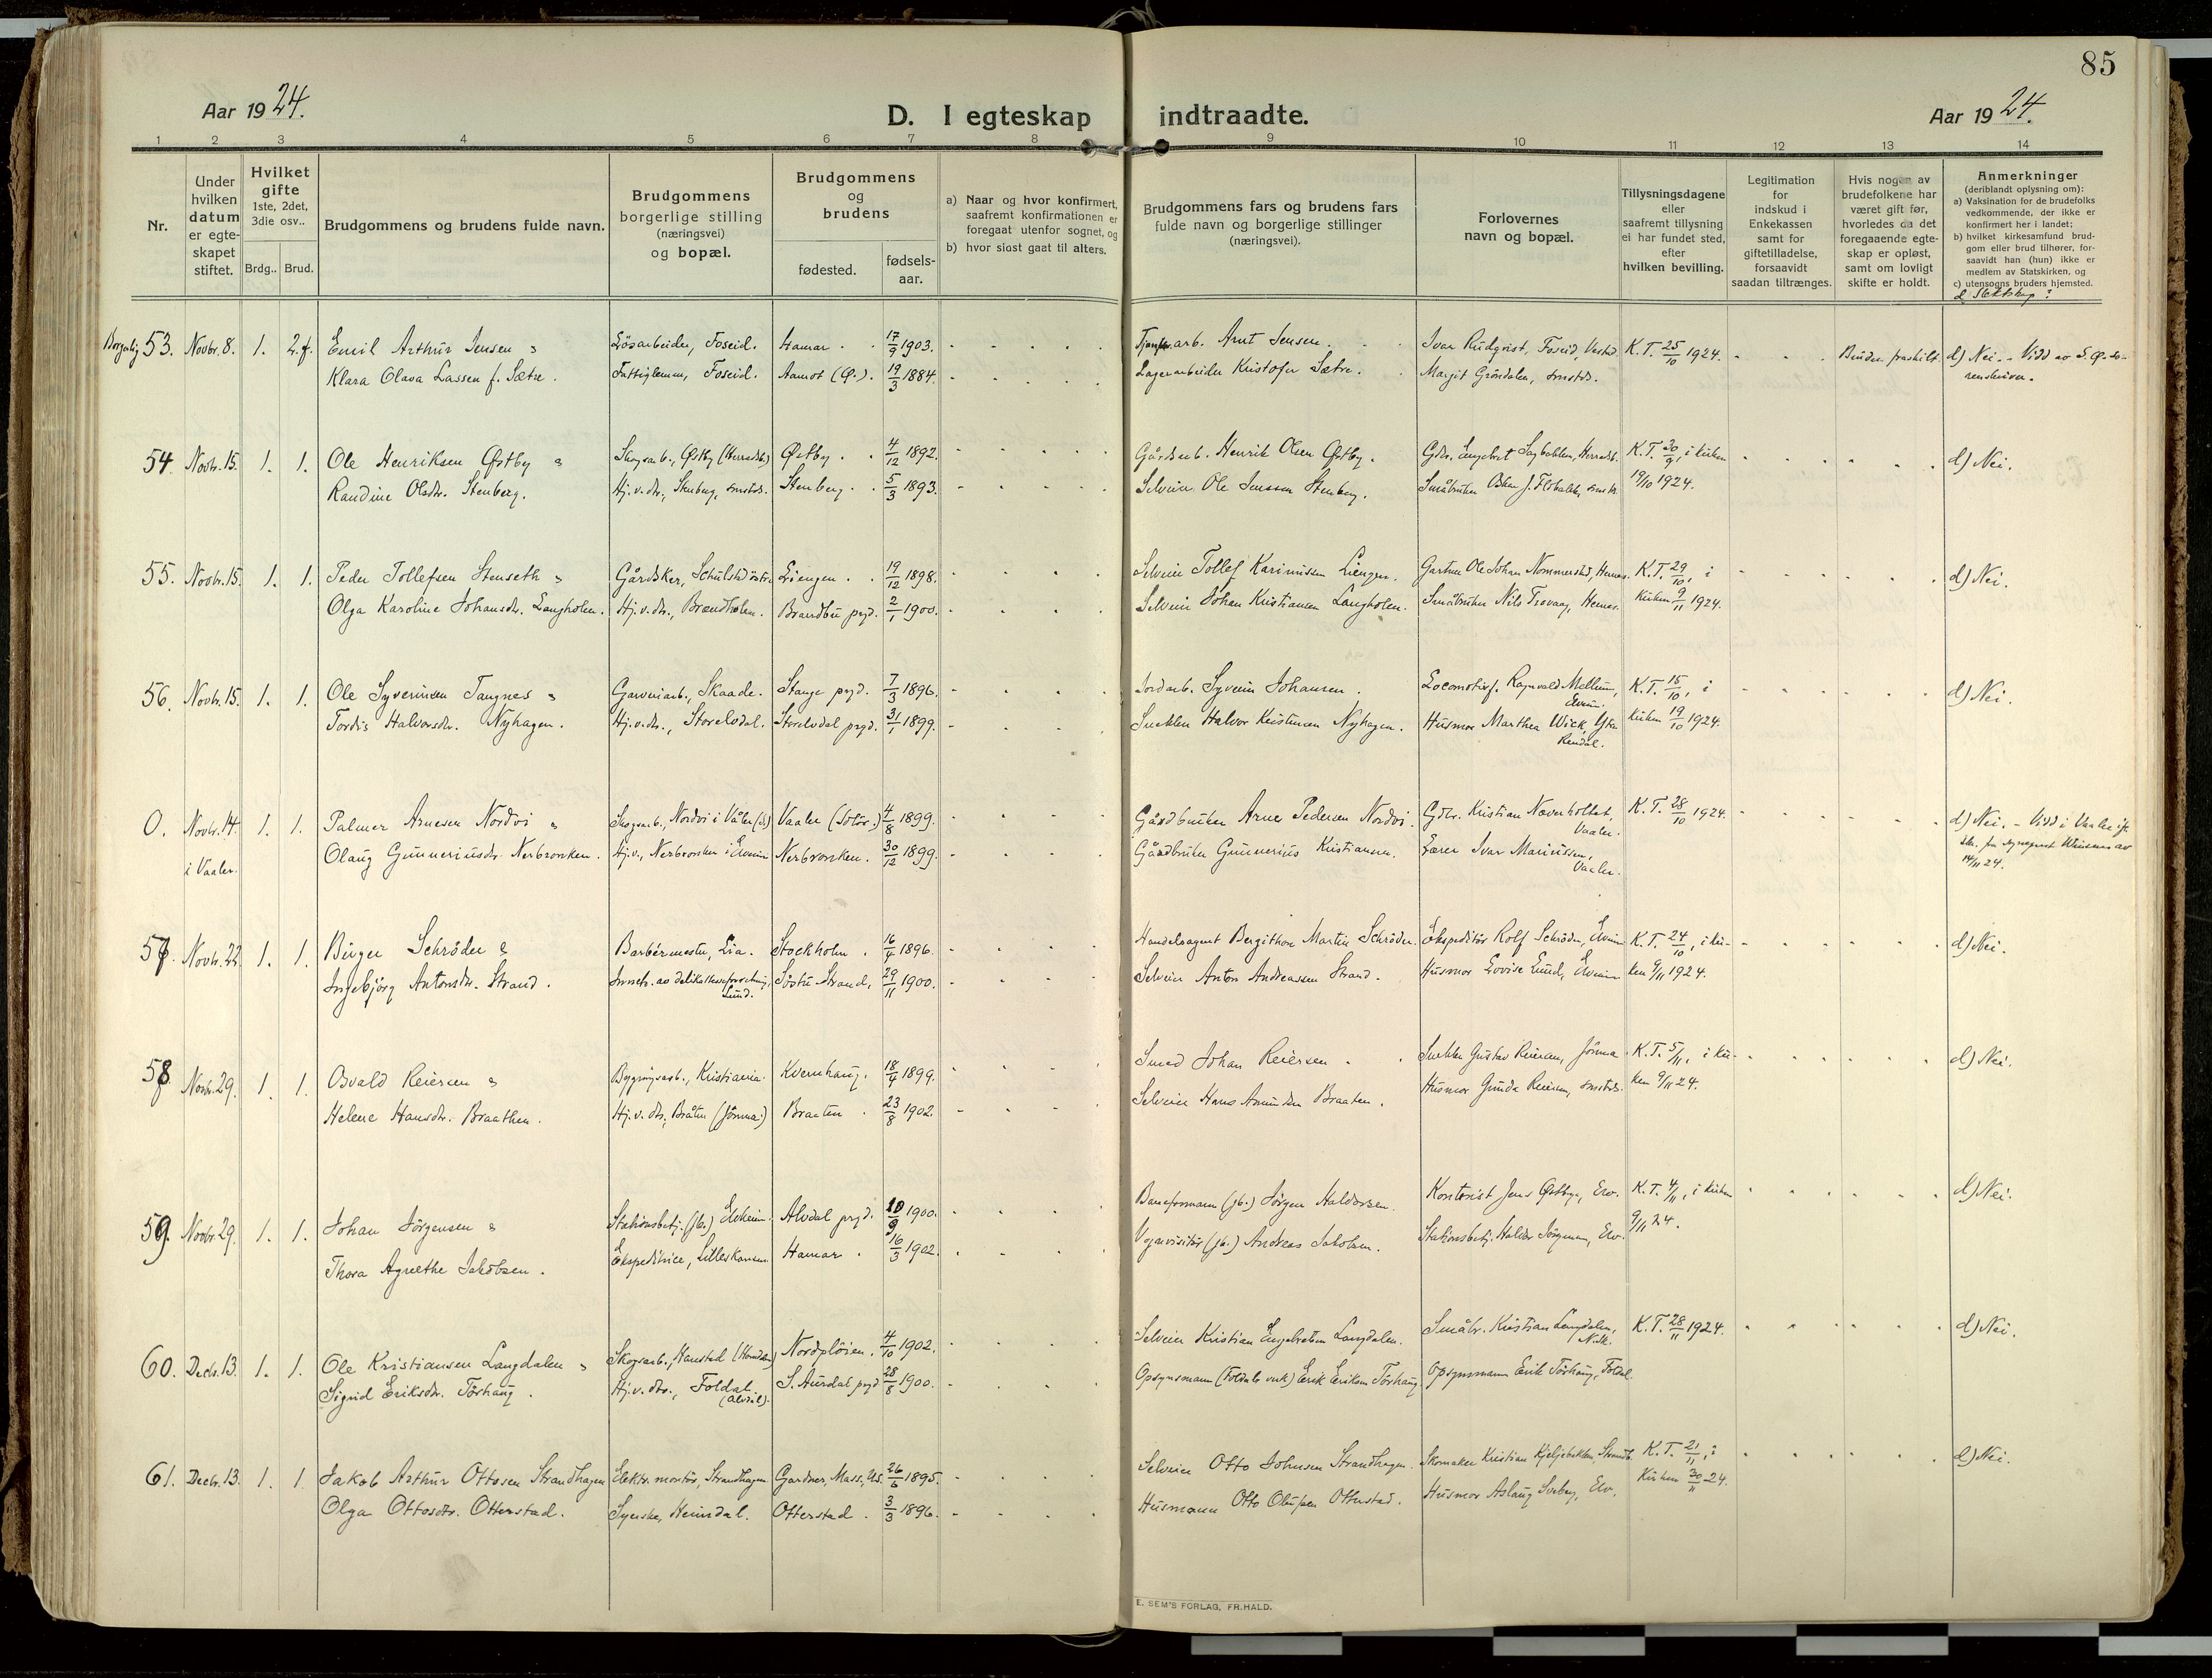 85
Aar 1924.
D. I egteskap indtraadte.
Aar 1924.
1 2 3 4 5 6 7 8 9 10 11 12 13 14
Nr.
Under
hvilken
datum
er egte-
skapet
stiftet.
Hvilket
gifte
1ste, 2det,
3die osv..
Brdg.. Brud.
Brudgommens og brudens fulde navn.
Brudgommens
borgerlige stilling
(næringsvei)
og bopæl.
Brudgommens
og
brudens
fødested.
fødsels-
aar.
a) Naar og hvor konfirmert,
saafremt konfirmationen er
foregaat utenfor sognet, og
b) hvor sidst gaat til alters.
Brudgommens fars og brudens fars
fulde navn og borgerlige stillinger
(næringsvei).
Forlovernes
navn og bopæl.
Tillysningsdagene
eller
saafremt tillysning
ei har fundet sted,
efter
hvilken bevilling.
Legitimation
for
indskud i
Enkekassen
samt for
giftetilladelse,
forsaavidt
saadan tiltrænges.
Hvis nogen av
brudefolkene har
været gift før,
hvorledes da det
foregaaende egte-
skap er opløst,
samt om lovligt
skifte er holdt.
Anmerkninger
(deriblandt oplysning om):
a) Vaksination for de brudefolks
vedkommende, der ikke er
konfirmert her i landet;
b) hvilket kirkesamfund brud-
gom eller brud tilhører, for-
saavidt han (hun) ikke er
medlem av Statskirken, og
c) utensogns bruders hjemsted.
d) Slektskap?
Borgerlig 53. Novbr. 8. 1. 2. f. Emil Arthur Jensen Løsarbeider, Foseid. Hamar 17/9 1903. arb. Arnt Jensen. Ivar Rudqvist, Foseid, K.T. 25/10 1924. Bruden fraskilt d) Nei. - Vidd av
Klara Olava Lassen f. Sætre. Fattiglem, Foseid. Aamot (Ø.). 19/3 1884. Lagerarbeider Kristofer Sætre. Margit Grøndalen, smstds. renskriver.
54. Novbr. 15. 1. 1. Ole Henriksen Østby Skogsarb., Østby (Herradsb.) Østby. 4/12 1892. Gårdsarb. Henrik Olsen Østby. Gdbr. Engebret K.T. 30/9, i kirken d) Nei.
Randine Olsdtr. Stenberg. Hj.v. dtr., Stenberg, smstds. Stenberg. 5/3 1893. Selveier Ole Jenssen Stenberg. Småbruker Oskar J. 19/10 1924.
55. Novbr. 15. 1. 1. Peder Tollefsen Stenseth Liengen. 19/12 1898. Selveier Tollef Karinusen Liengen. Gartner Ole Johan K.T. 29/10, i d) Nei.
Olga Karoline Johansdtr. Langholen. Hj.v. dtr., Brandholen. Brandbu prgd. 2/1 1900. Selveier Johan Kristiansen Langholen. Småbruker Nils kirken 9/11 1924.
56. Novbr. 15. 1. 1. Ole Syverinsen Tangnes Garveriarb., Skaade. Stange prgd. 7/3 1896. Jordarb. Syverin Johansen. Locomotivf. Ragnvald Mellum, Elverum. K.T. 15/10, i d) Nei.
Tordis Halvorsdtr. Nyhagen. Hj.v. dtr., Storelvdal. Storelvdal prgd. 31/1 1899. Snekker Halvor Kristiansen Nyhagen. Husmor Marthea Wick, Ytre Rendal. kirken 19/10 1924.
0. Novbr. 14. 1. 1. Palmer Arnesen Nordvi Skogsarb., Nordvi i Våler Vaaler (Solør.) 4/8 1899. Gårdbruker Arne Pedersen Nordvi. Gdbr. Kristian Næverholtet, Vaaler. K.T. 28/10 1924. d) Nei. - Vidd i Vaaler
i Vaaler. Olaug Gunneriusdtr. Nerbronken. Hj.v., Nerbronken i Elverum Nerbronken. 30/12 1899. Gårdbruker Gunnerius Kristiansen. Lærer Ivar Mariussen, Vaaler. av 14/11 24.
57. Novbr. 22 1. 1. Birger Schrøder Barbérmester, Lia. Stockholm. 16/4 1896. Handelsagent Bergithon Martin Schrøder. Ekspeditør Rolf Schrøder, Elverum K.T. 24/10, i kir- d) Nei.
Ingebjørg Antonsdtr. Strand. Søstre Strand, 29/11 1900. Selveier Anton Andreassen Strand. Husmor Lovise Lund, Elverum ken 9/11 1924.
58. Novbr. 29. 1. 1. Osvald Reiersen Bygningsarb., Kristiania. Kvernhaug. 18/4 1899. Smed Johan Reiersen. Snekker Gustav Reiersen, Jømna K.T. 5/11, i kir- d) Nei.
Helene Hansdtr. Braathen. Hj.v. dtr., Bråten (Jømna) Braaten. 23/8 1902. Selveier Hans Amundsen Braaten. Husmor Gunda Reiersen, smstds. ken 9/11 24.
59. Novbr. 29. 1. 1. Johan Jørgensen Stationsbetj. (jb.) Alvdal prgd. 10/9 1900. Baneformann (jb.) Jørgen Haldorsen. Kontorist Jens Østbye, Elv. K.T. 4/11, i kirken d) Nei.
Thora Agnethe Jakobsen. Ekspeditrice, Lillestrøm Hamar. 16/3 1902. Vognvisitør (jb.) Andreas Jakobsen. Stationsbetj. Haldor Jørgensen, Elv. 9/11 24.
60. Decbr. 13. 1. 1. Ole Kristiansen Langdalen Skogsarb., Hanstad Nordpløien. 4/10 1902. Selveier Kristian Engebretsen Langdalen. Småbr. Kristian Langdalen, K.T. 28/11 1924. d) Nei.
Sigrid Eriksdtr. Tørhaug. Hj.v. dtr., Foldal. (Alvdal). S. Aurdal prgd. 28/8 1900. Opsynsmann (Foldals verk) Erik Eriksen Tørhaug Opsynsmann Erik Tørhaug, Foldal.
61. Decbr. 13. 1. 1 Jakob Arthur Ottosen Strandhagen Elektr. montør, Strandhagen. Gardner, Mass., U.S. 26/6 1895. Selveier Otto Johnsen Strandhagen. Skomaker Kristian K.T. 21/11, i d) Nei.
Olga Ottosdtr. Otterstad. Syerske, Heimdal. Otterstad. 3/3 1896. Husmann Otto Olufsen Otterstad. Husmor Aslaug Elv. Kirken 30/11 24.
E. SEM'S FORLAG, FR.HALD.